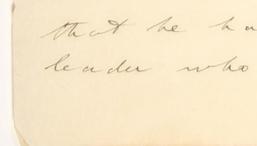 that he ha
leader who